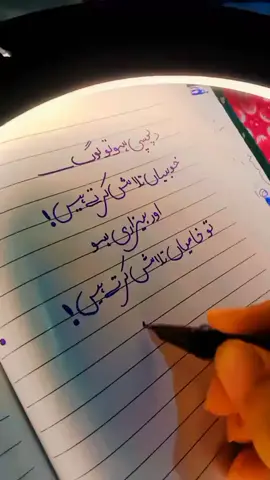 دلچسپی ہو تو لوگ
خوبیاں تلاش کرتے ہیں!
اور بیزاری ہو
تو خامیاں تلاش کرتے ہیں!